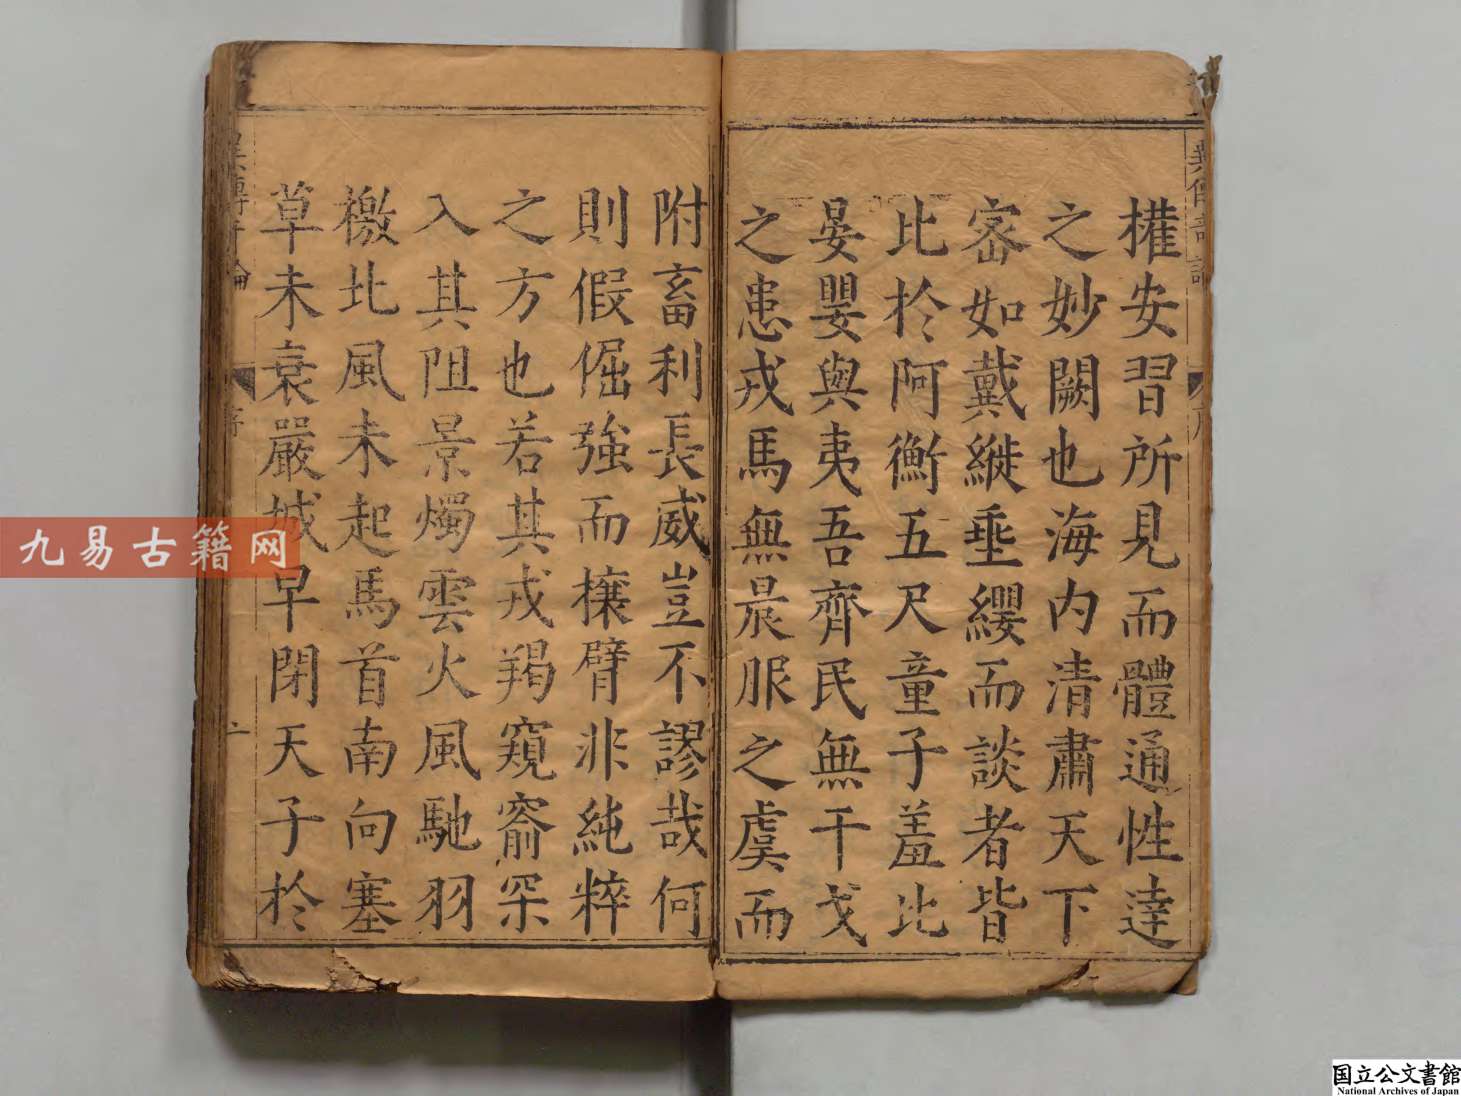 權安習所見而體通性達
之妙闕也海内清肅天下
宻如戴縰垂纓而談者皆
比於阿衡五尺童子羞比
晏嬰與夷吾齊民無干戈
之患戎馬無晨服之虞而
附畜利長威豈不謬哉何
則假倔強而攘臂非純粹
之方也若其戎羯窺窬深
入其阻景燭雲火風馳羽
檄北風未起馬首南向塞
草未衰嚴城早閉天子於
序
九易古籍网
国立公文書館
National Archives of Japan